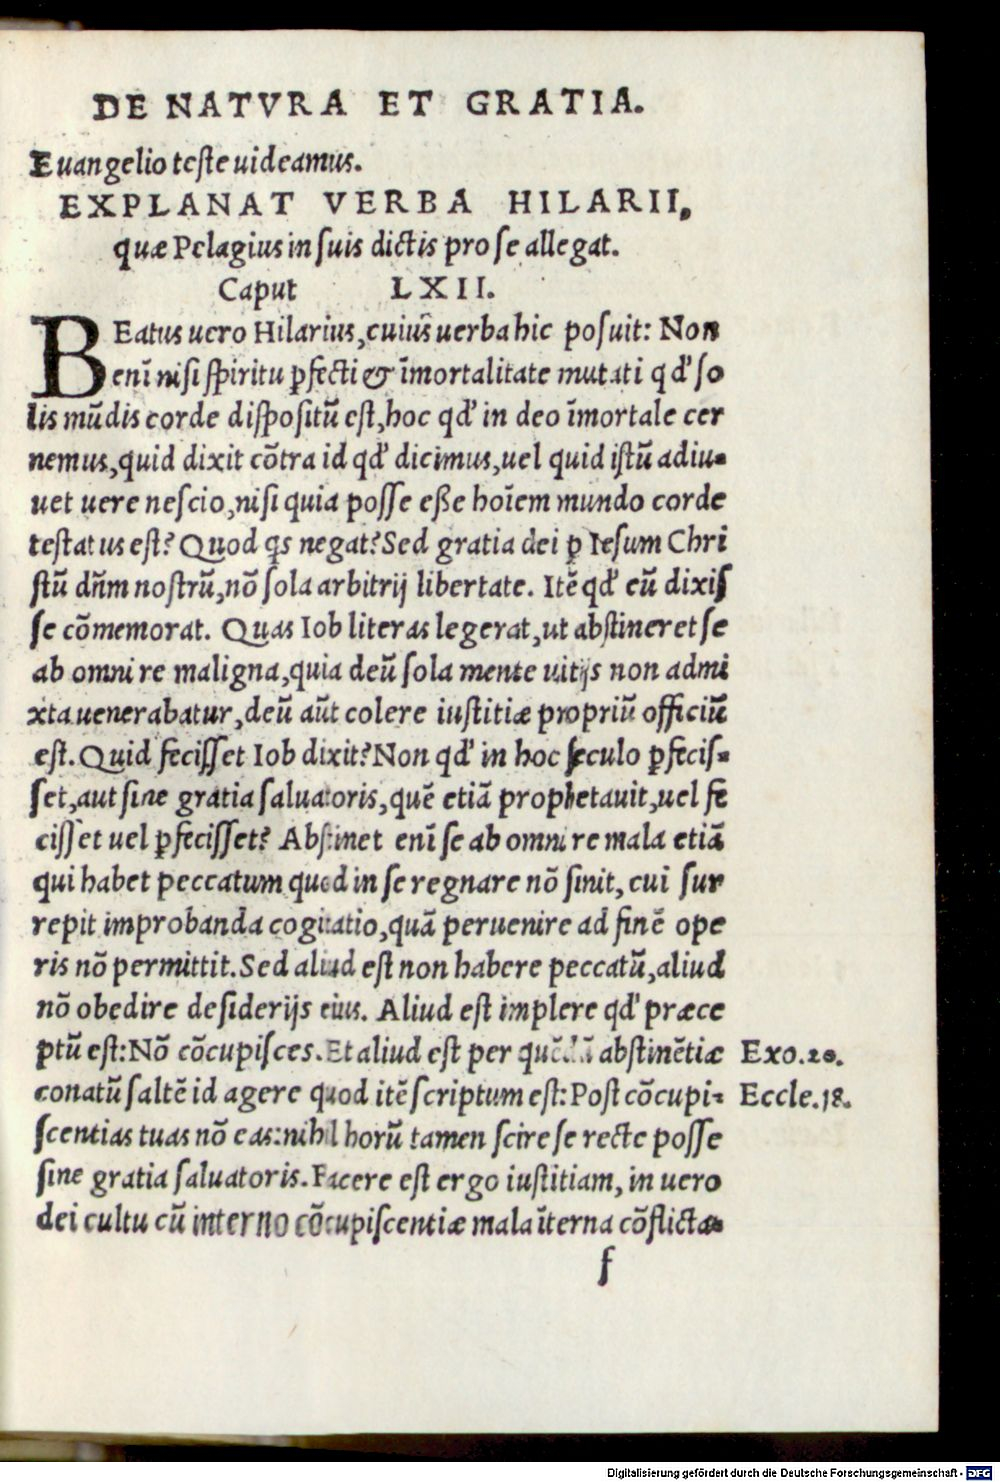 DE NATVRA ET GRATIA.
Euangelio teste uideamus.
EXPLANAT VERBA HILARII,
quæ Pelagius in suis dictis pro se allegat.
Caput LXII.
BEatus uero Hilarius, cuiuˢ uerba hic posuit: Non
enī nisi spiritu ꝑfecti & īmortalitate mutati qd' so
lis mūdis corde dispositū est, hoc qd' in deo īmortale cer
nemus, quid dixit cōtra id qd' dicimus, uel quid istū adiu-
uet uere nescio, nisi quia posse esse hoīem mundo corde
testatus est? Quod qs negat? Sed gratia dei ꝑ Iesum Chri
stū dn̄m nostrū, nō sola arbitrij libertate. Itē qd' eū dixis
se cōmemorat. Quas Iob literas legerat, ut abstineret se
ab omni re maligna, quia deū sola mente uitijs non admi
xta uenerabatur, deū aūt colere iustitiæ propriū officiū
est. Quid fecisset Iob dixit? Non qd' in hoc seculo ꝑfecis-
set, aut sine gratia saluatoris, quē etiā prophetauit, uel fe
cisset uel ꝑfecisset? Abstinet enī se ab omni re mala etiā
qui habet peccatum quod in se regnare nō sinit, cui sur
repit improbanda cogitatio, quā peruenire ad finē ope
ris nō permittit. Sed aliud est non habere peccatū, aliud
nō obedire desiderijs eius. Aliud est implere qd' præce
ptū est: Nō cōcupisces. Et aliud est per quēdā abstinētiæ Exo.20.
conatū saltē id agere quod itē scriptum est: Post cōcupi- Eccle.18.
scentias tuas nō eas: nihil horū tamen scire se recte posse
sine gratia saluatoris. Facere est ergo iustitiam, in uero
dei cultu cū interno cōcupiscentiæ mala īterna cōflicta-
f
Digitalisierung gefördert durch die Deutsche Forschungsgemeinschaft - DFG